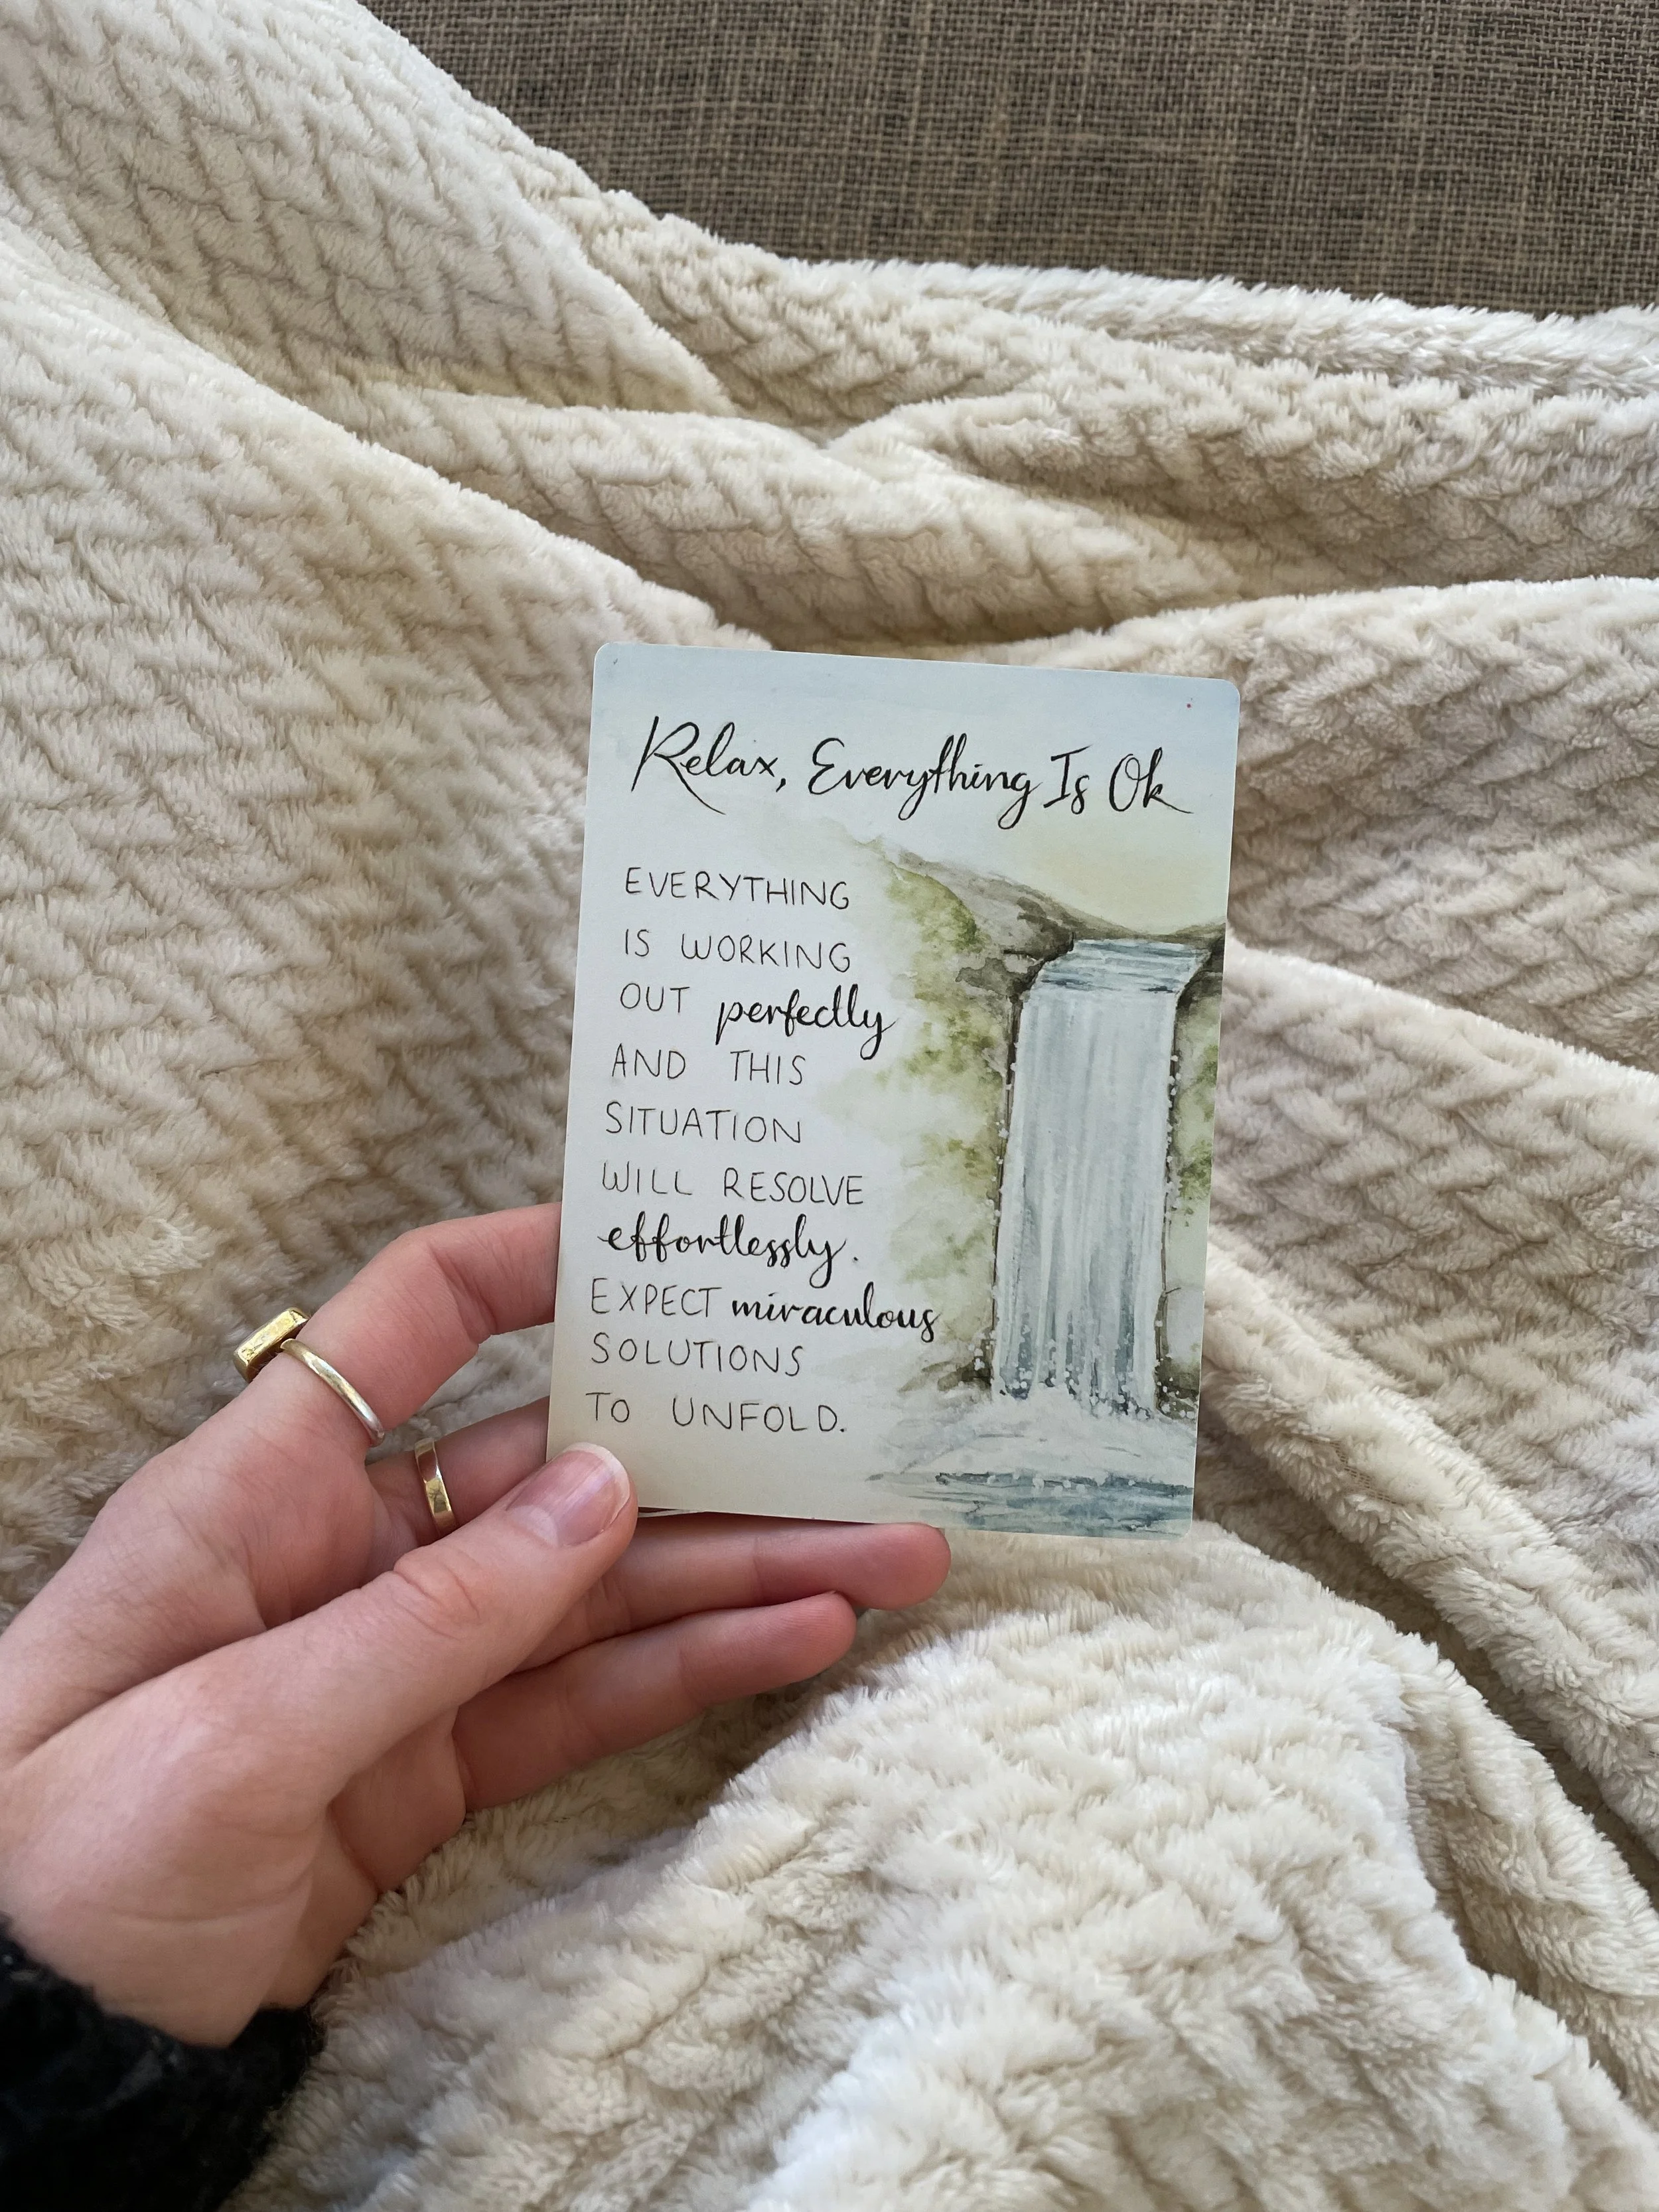 Relax, Everything Is Ok
EVERYTHING
IS WORKING
OUT perfectly
AND THIS
SITUATION
WILL RESOLVE
effortlessly.
EXPECT miraculous
SOLUTIONS
TO UNFOLD.